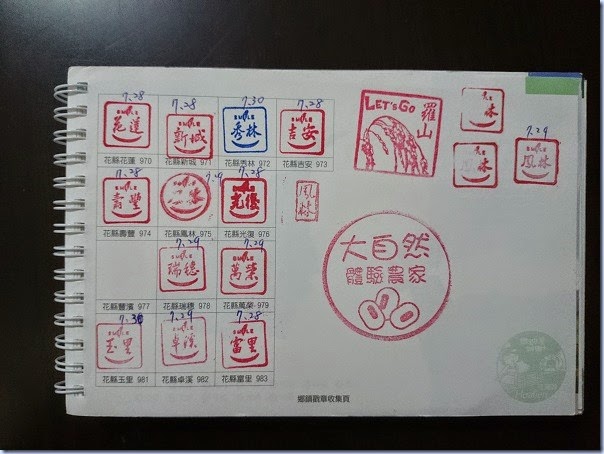 7.28 7.28 7.30 7.28
花蓮 新城 秀林 吉安
花縣花蓮 970 花縣新城 971 花縣秀林 972 花縣吉安 973
7.28 7.28
壽豐 林 光復
花縣壽豐 974 花縣鳳林 975 花縣光復 976
7.29 7.29
瑞穗 萬榮
花縣豐濱 977 花縣瑞穗 978 花縣萬榮 979
7.30 7.29 7.28
玉里 卓溪 富里
花縣玉里 981 花縣卓溪 982 花縣富里 983
LET'S GO 羅山
林
林
7.29
鳳林
鳳林
大自然
體驗農家
鄉鎮戳章收集頁